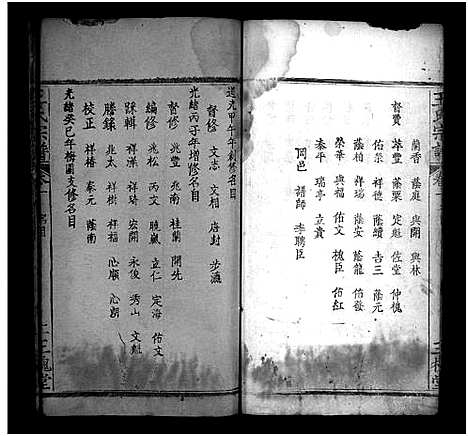 蘭香 蔭庭 興開 興林
督賈 萃豐 蔭粟 定魁 佐堂 仲槐
佑宗 祥德 蔭績 吉三 蔭元
蔭柏 祥瑞 蔭安 蔭龍 佑發
榮華 興福 佑文 槐臣 佑紅
泰平 瑞亭 立貴
同邑 譜師 李聘臣
道光甲午年創修名目
督修 文志 文相 啓封 步瀛
光緒丙子年增修名目
督修 兆豐 兆南 桂蘭 開先
編修 兆松 丙文 曉嵐 立仁 定海 佑文
踩輯 祥樹 祥琦 宏開 永俊 秀山 文魁
謄錄 兆太 祥樹 祥瑞 心順 心朗
校正 祥椿 泰元 蔭南
光緒癸巳年梅園支修名目
王氏宗譜 卷一
三槐堂